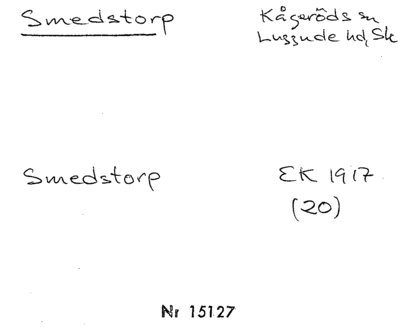 Smedstorp
Kågeröds sn
Luggude hd, Sk
Smedstorp
EK 1917
(20)
Nr 15127